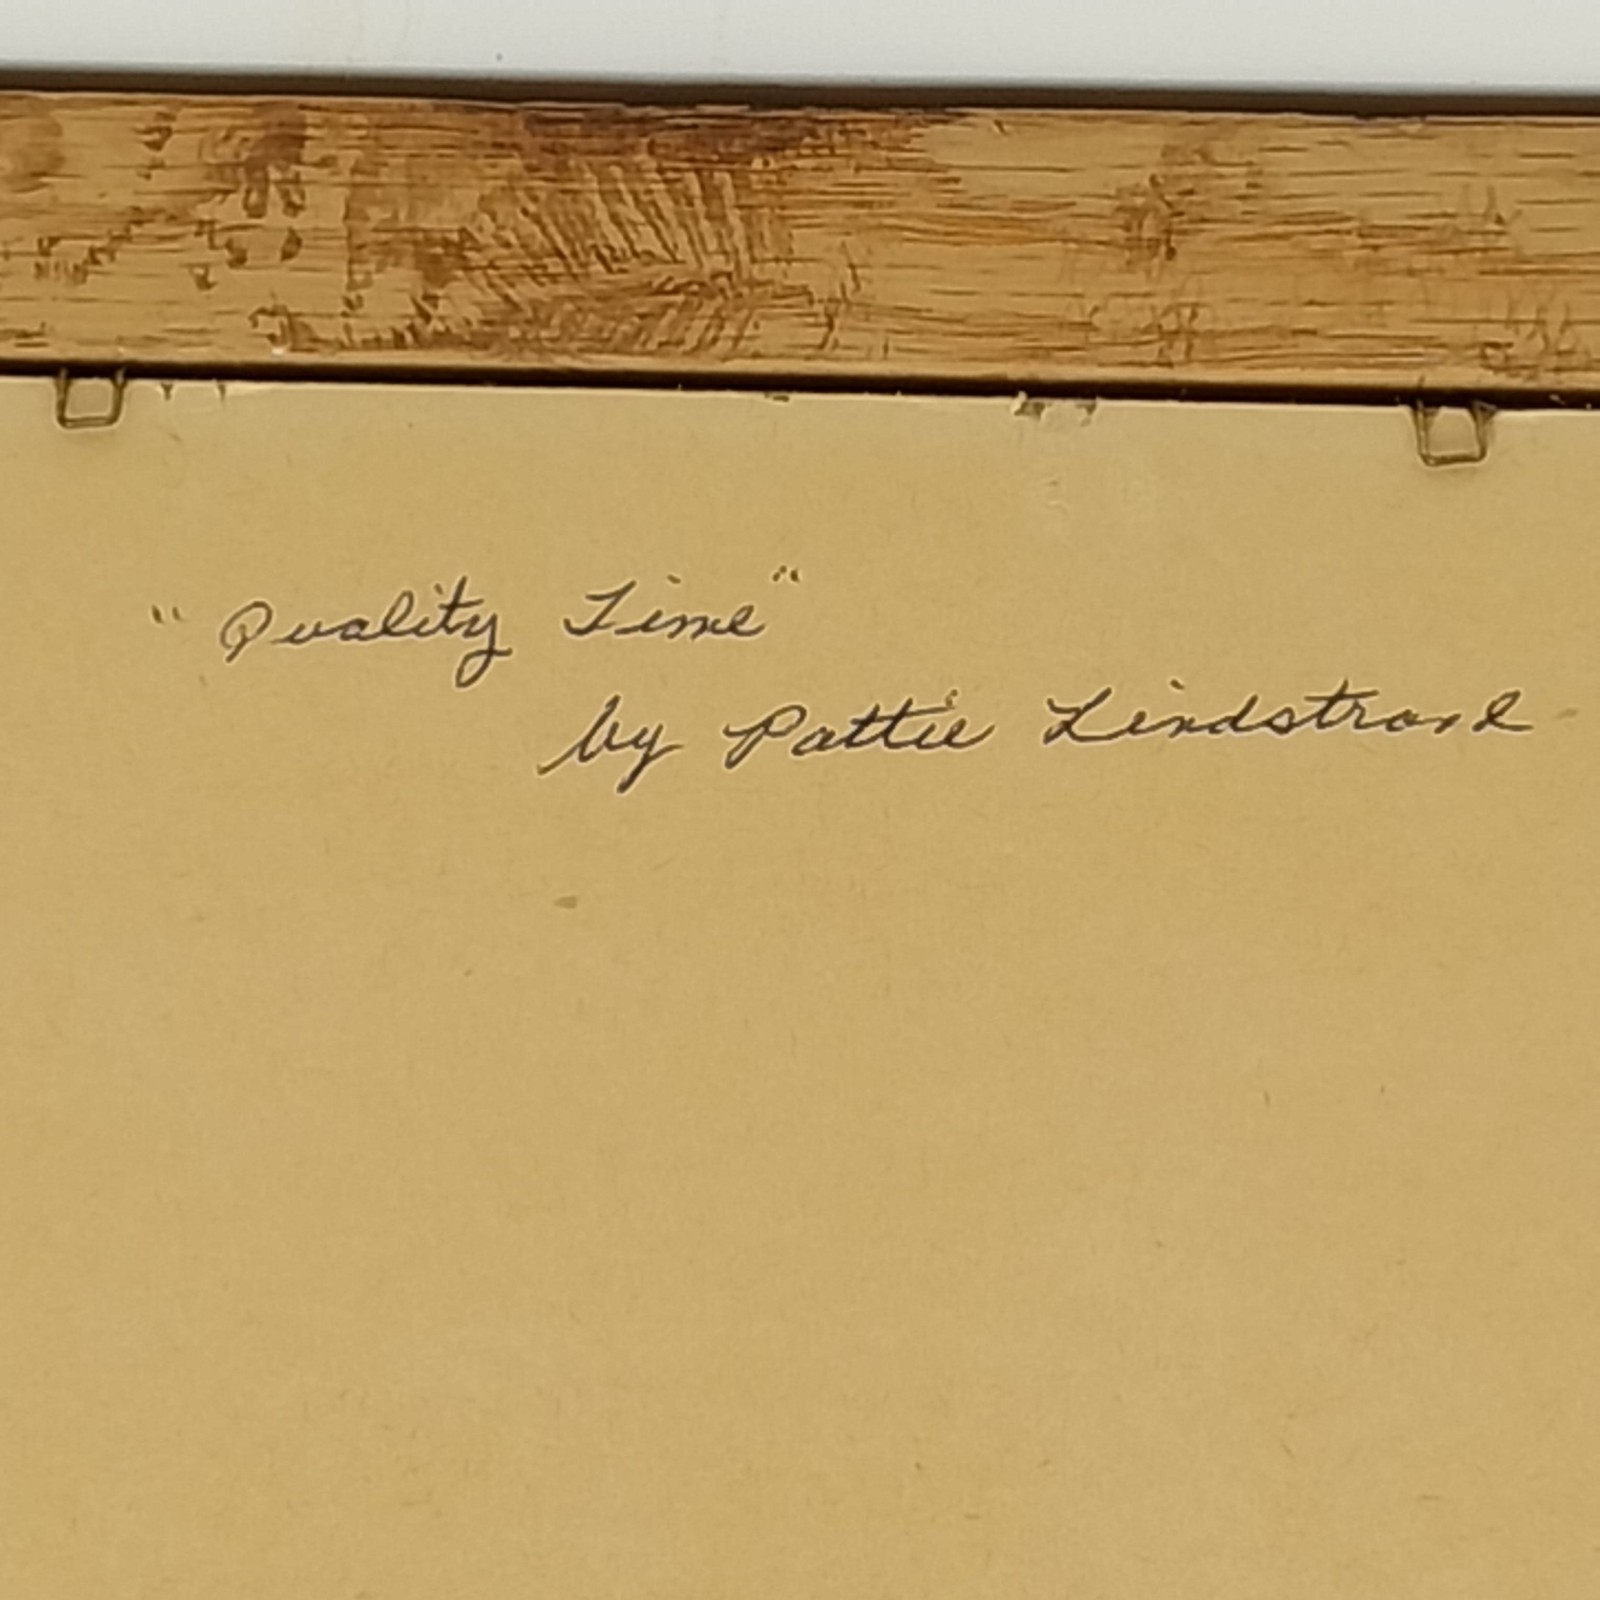 "Quality Time"
by Pattie Lindstrand